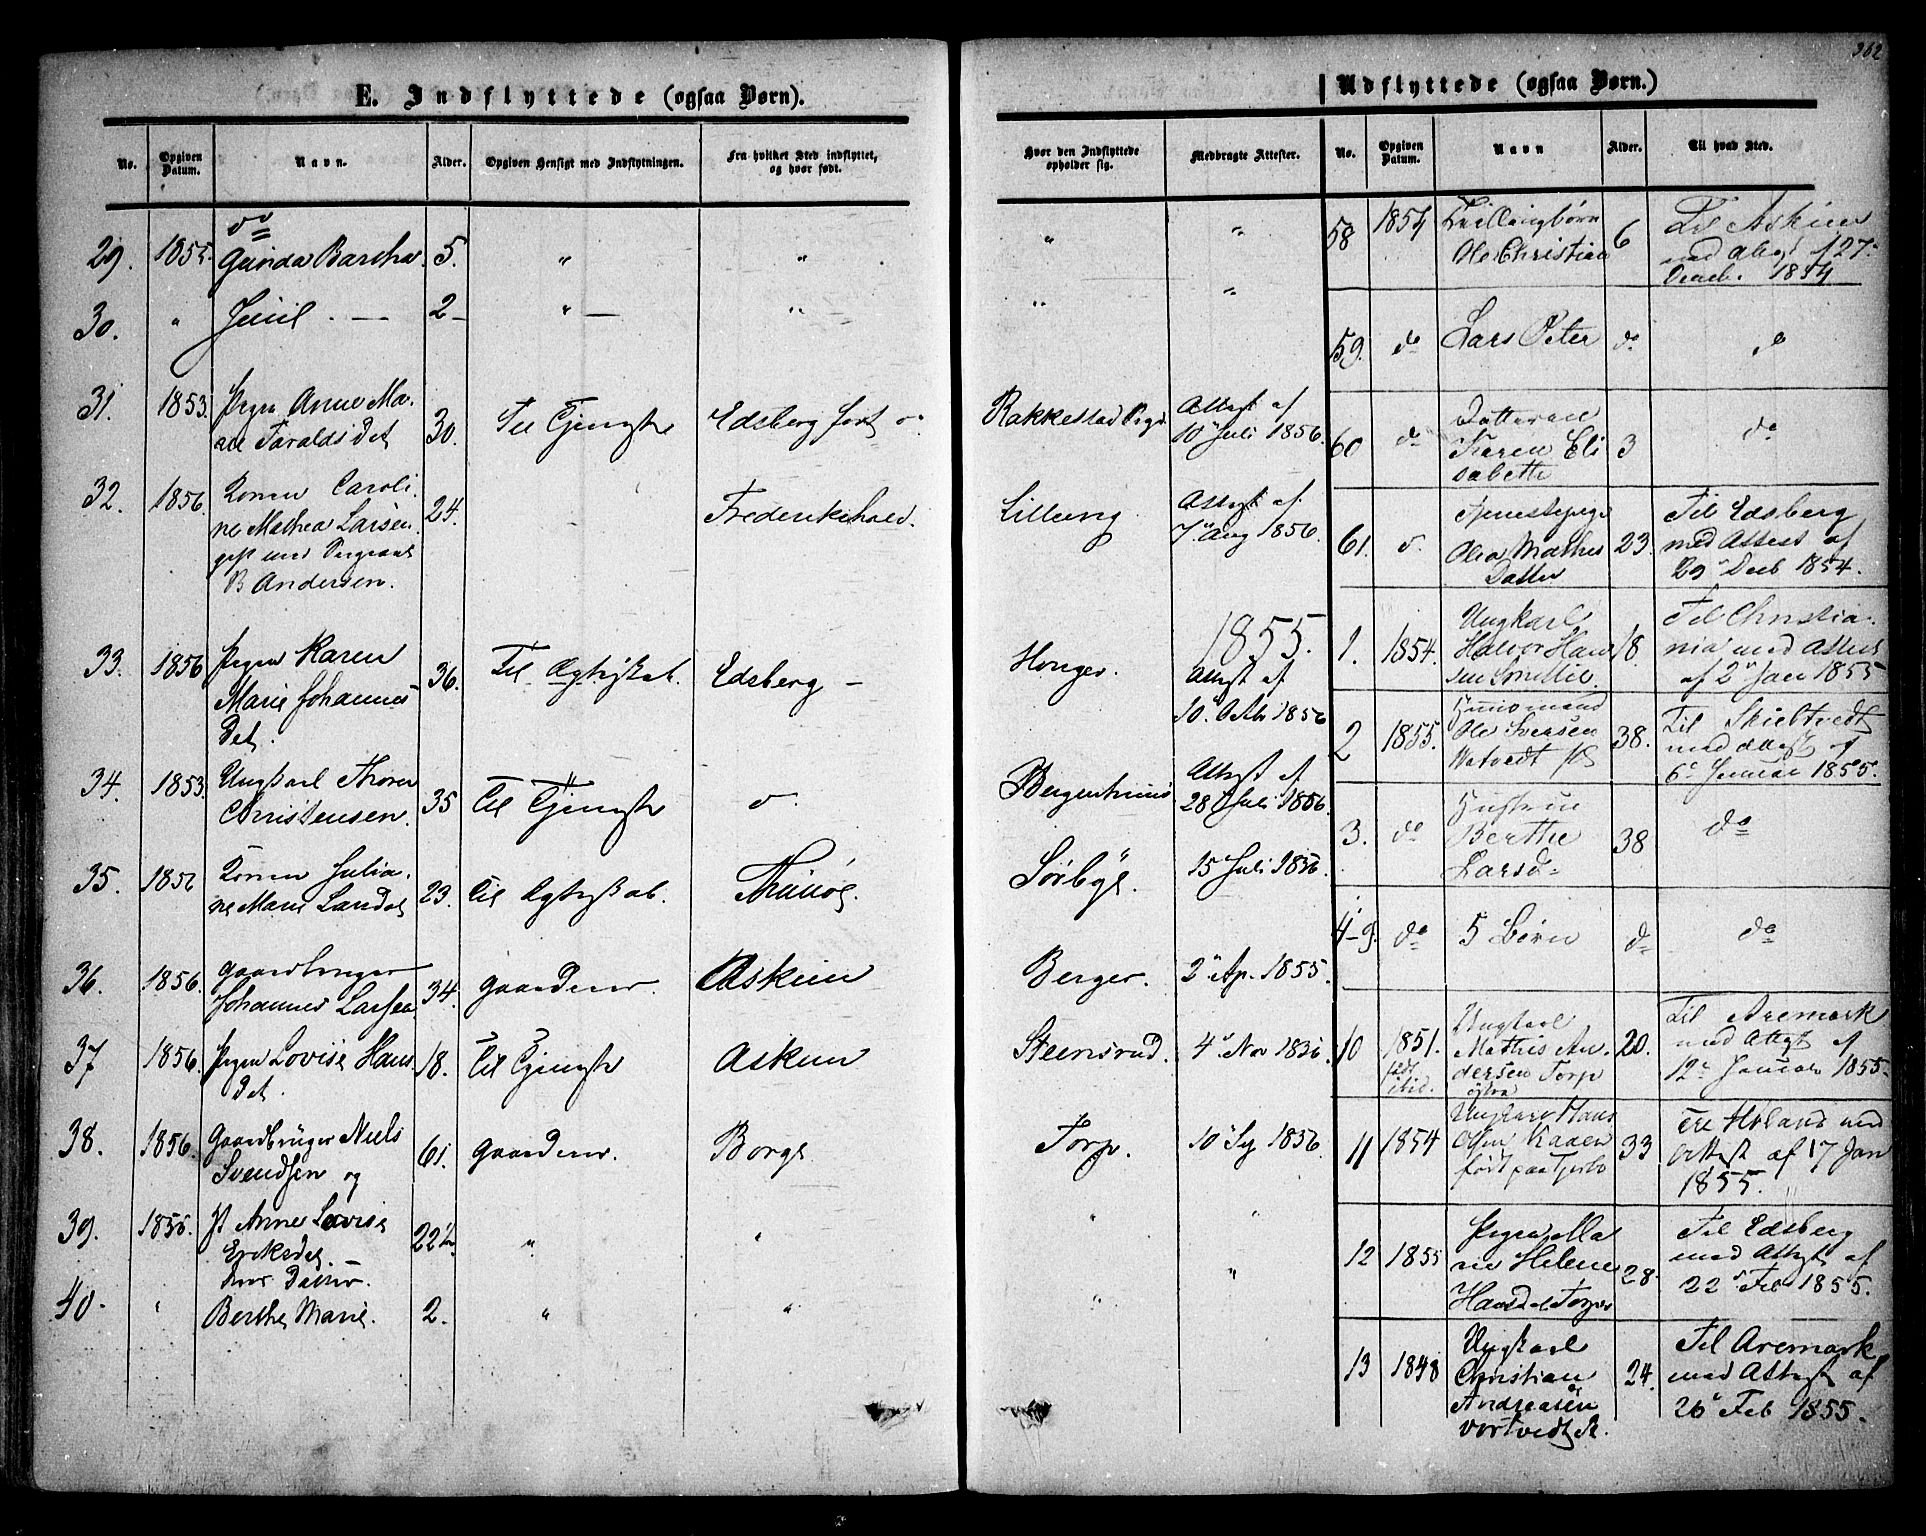 362
E. Indflyttede (ogsaa Børn).
No.
Opgiven Datum.
Navn.
Alder.
Opgiven Hensigt med Indflytningen.
Fra hvilket Sted indflyttet, og hvor født.
Hvor den Indflyttede opholder sig.
Medbragte Attester.
do
29. 1855. Gunda Bartha 5. " " " "
30. " Juul 2 " " " "
31. 1853. Pigen Anne Ma-
rie Taralds Det 30. Til Tjeneste Edsberg født do Rakkestad Prgd. Attest af
10 Juli 1856.
32. 1856 Konen Caroli
ne Mathea Larsen 24. Frederikshald. Lilleeng Attest af
7 Aug 1856.
gift med
B Andersen.
1855.
33. 1856 Pigen Karen
Marie Johannes 36. Til Ægteskab. Edsberg Honger. Attest af
Det. 10 Octb 1856
34. 1853. Ungkarl Thorer
Christensen. 35 Til Tjeneste do. Bergenhuus Attest af
28 Juli 1856.
35. 1856 Konen Julia-
ne Marie Landet 23. Til Ægteskab. Thunø. Sørbye. 15 Juli 1856.
36. 1856. Gaardbruger
Johannes Larsen 34. Askim Berger. 2 Ap. 1855.
37 1856. Pigen Lovise Hans
Det. 18. Til Tjeneste Askim Steensrud. 4 Nov 1856
38. 1856. Gaardbruger Niels
Svendsen og 61. Borge Torp. 10 1856
39. 1856. Anne Lovise
Eriksdet. 22½ " " " "
hver Datter.
40. " Berthe Marie. 2. " " " "
Udflyttede (ogsaa Børn.)
No.
Opgiven Datum.
Navn
Alder.
Til hvad Sted.
58 1854 Tvillingbørn
Ole Christian 6 Til Askim
med Attest f 27
Decb. 1854
59. do Lars Peter do do
60 do Datteren
Karen Eli
sabette 3 do
61. do. Tjenestepige
Olea Mathis
Datter 23. Til Edsberg
med Attest af
29 Decb 1854.
1. 1854. Ungkarl
Halvor Han
sen 18 Til Christia-
nia med Attest
af 2 Jan 1855
2 1855. Huusmand
Ole Iversen 38. Til Skibtvedt
med Attest af
6 Januar 1855.
3. do Hustru
Berthe
Larsd 38 do
4-9. do 5 Børn do do
10 1851.
født
ibid. Ungkarl
Mathis An-
dersen Torp
østre 20. Til Aremark
med Attest af
12 Januar 1855.
11 1854 Ungkarl Hans
Olsen Kaaen
født paa 33 Til Høland med
Attest af 17 Jan
1855.
12 1855 Pigen Ma
rie Helene
Hansdet Torper 28. Til Edsberg
med Attest af
22 Feb 1855.
13 1848 Ungkarl
Christian
Andreasen 24. Til Aremark
med Attest af
26 Feb 1855.